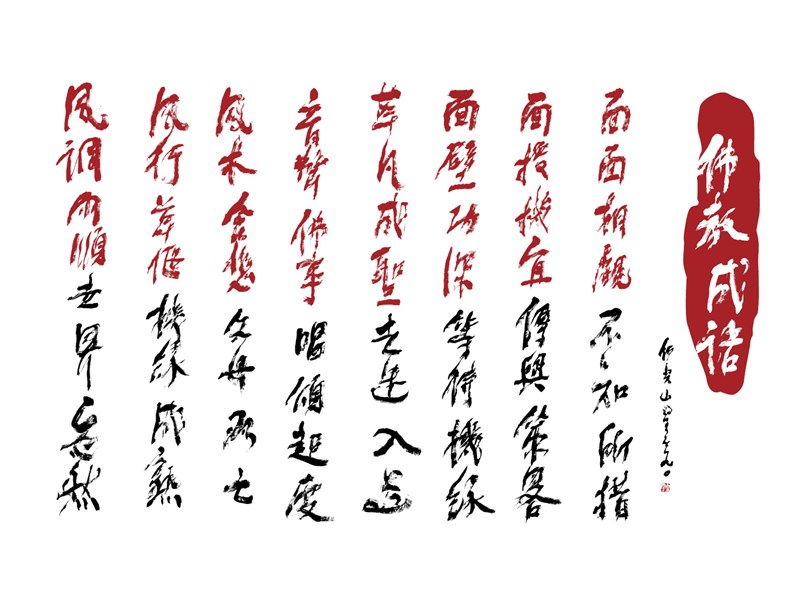 佛教成語
佛光山星雲
面面相覷不知所措
面授機宜傳與策畧
面壁功深等待機緣
革凡成聖去迷入
音聲佛事唱頌超度
風木含悲父母
風行草偃機緣成熟
風調雨順世界安然